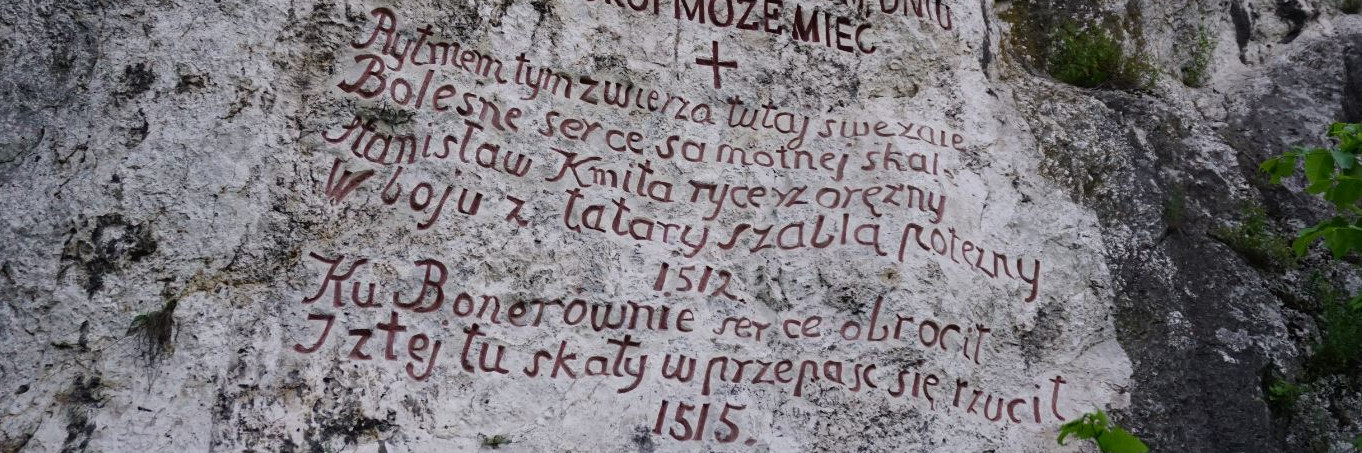 DNIU
MOŻE MIEĆ
+
Rytmem tym zwierza tutaj swe żale
Bolesne serce samotnej skale
Stanisław Kmita rycerz orężny
W boju z tatary szablą potężny
1512.
Ku Bonerównie serce obrócił
I z tej tu skały w przepaść się rzucił
1515.